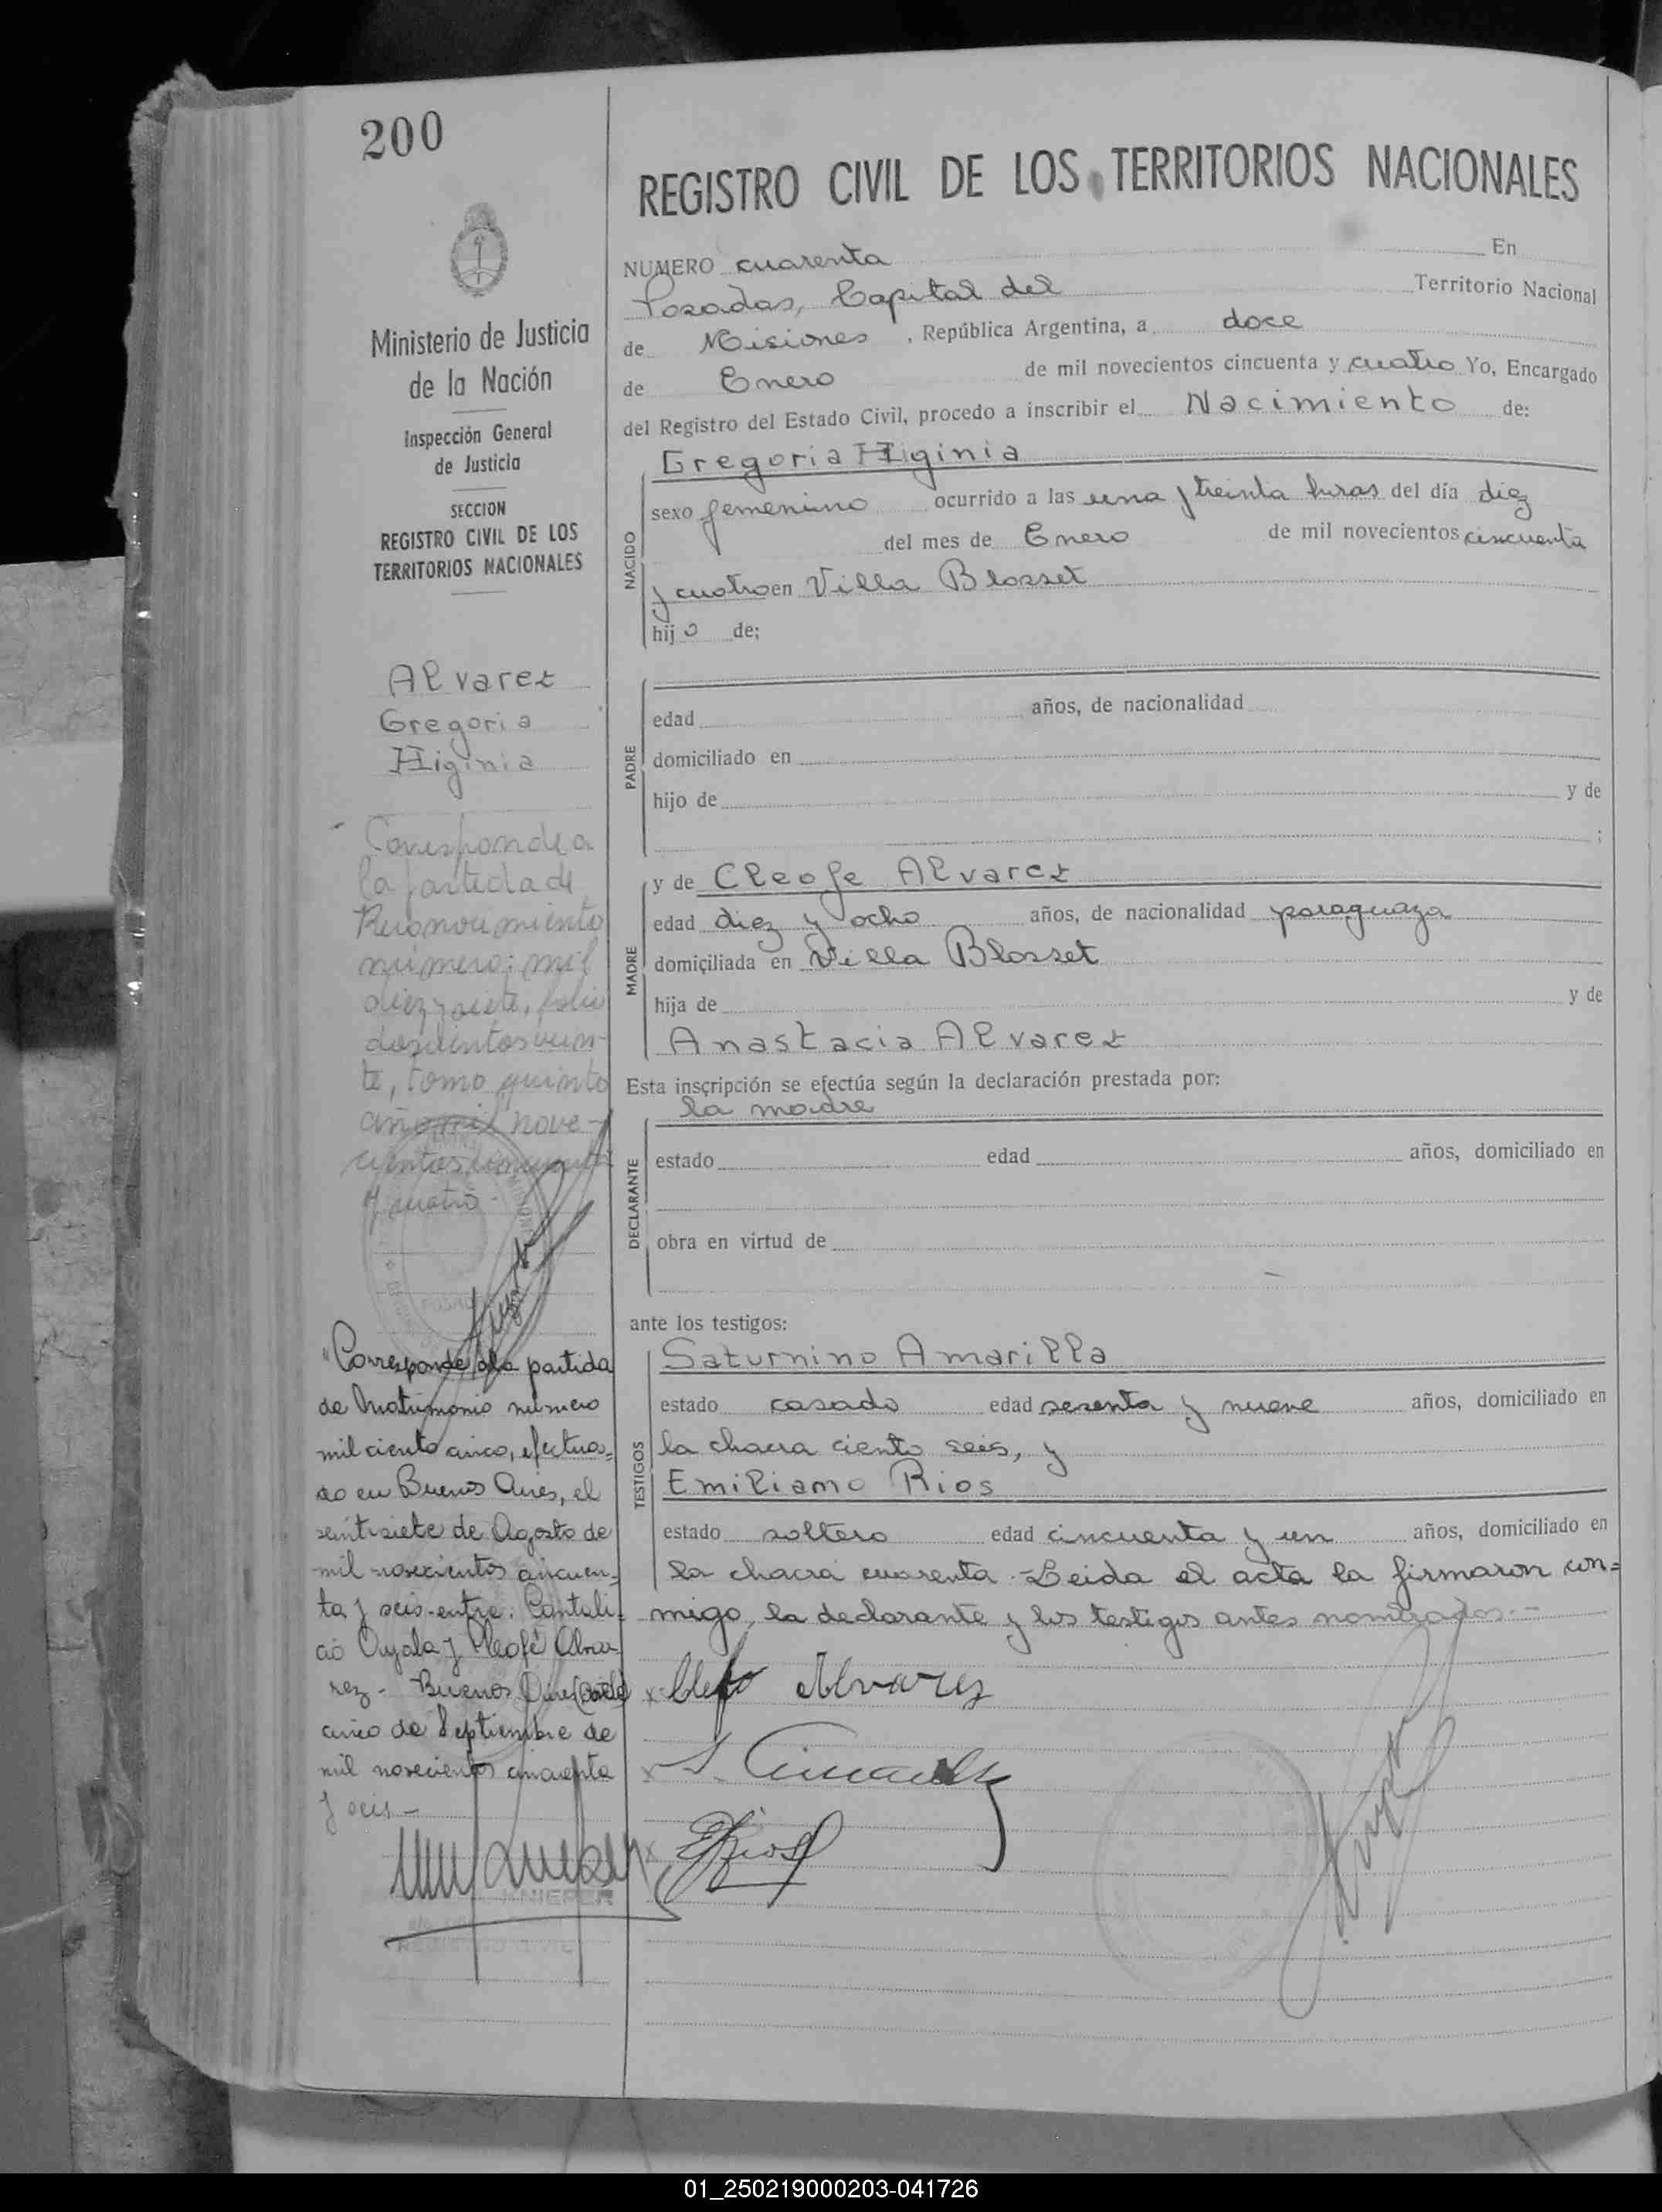 200
Ministerio de Justicia
de la Nación
Inspección General
de Justicia
SECCION
REGISTRO CIVIL DE LOS
TERRITORIOS NACIONALES
Alvarez
Gregoria
Higinia
Corresponde a
la partida de
Reconocimiento
número: mil
diez y siete, folio
doscientos vein-
te, tomo quinto
año mil nove-
cientos cincuenta
y cuatro.-
"Corresponde a la partida
de Matrimonio número
mil ciento cinco, efectua=
do en Buenos Aires, el
veintisiete de Agosto de
mil novecientos cincuen=
ta y seis-entre: Cantali=
cio Ayala y Cleofé Alva-
rez - Buenos Aires
cinco de Septiembre de
mil novecientos cincuenta
y seis -
REGISTRO CIVIL
REGISTRO CIVIL DE LOS TERRITORIOS NACIONALES
NUMERO cuarenta En
Posadas, Capital del Territorio Nacional
de Misiones, República Argentina, a doce
de Enero de mil novecientos cincuenta y cuatro Yo, Encargado
del Registro del Estado Civil, procedo a inscribir el Nacimiento de:
NACIDO
Gregoria Higinia
sexo femenino ocurrido a las una y treinta horas del día diez
del mes de Enero de mil novecientos cincuenta
y cuatro en Villa Blosset
hij a de;
PADRE
edad años, de nacionalidad
domiciliado en
hijo de y de
;
MADRE
y de Cleofe Alvarez
edad diez y ocho años, de nacionalidad paraguaya
domiciliada en Villa Blosset
hija de y de
Anastacia Alvarez
Esta inscripción se efectúa según la declaración prestada por:
la madre
DECLARANTE
estado edad años, domiciliado en
obra en virtud de
ante los testigos:
TESTIGOS
Saturnino Amarilla
estado casado edad sesenta y nueve años, domiciliado en
la chacra ciento seis, y
Emiliano Rios
estado soltero edad cincuenta y un años, domiciliado en
la chacra cuarenta.- Leida el acta la firmaron con=
migo, la declarante y los testigos antes nombrados.-
x Alvarez
x S.
x ERios
01_250219000203-041726